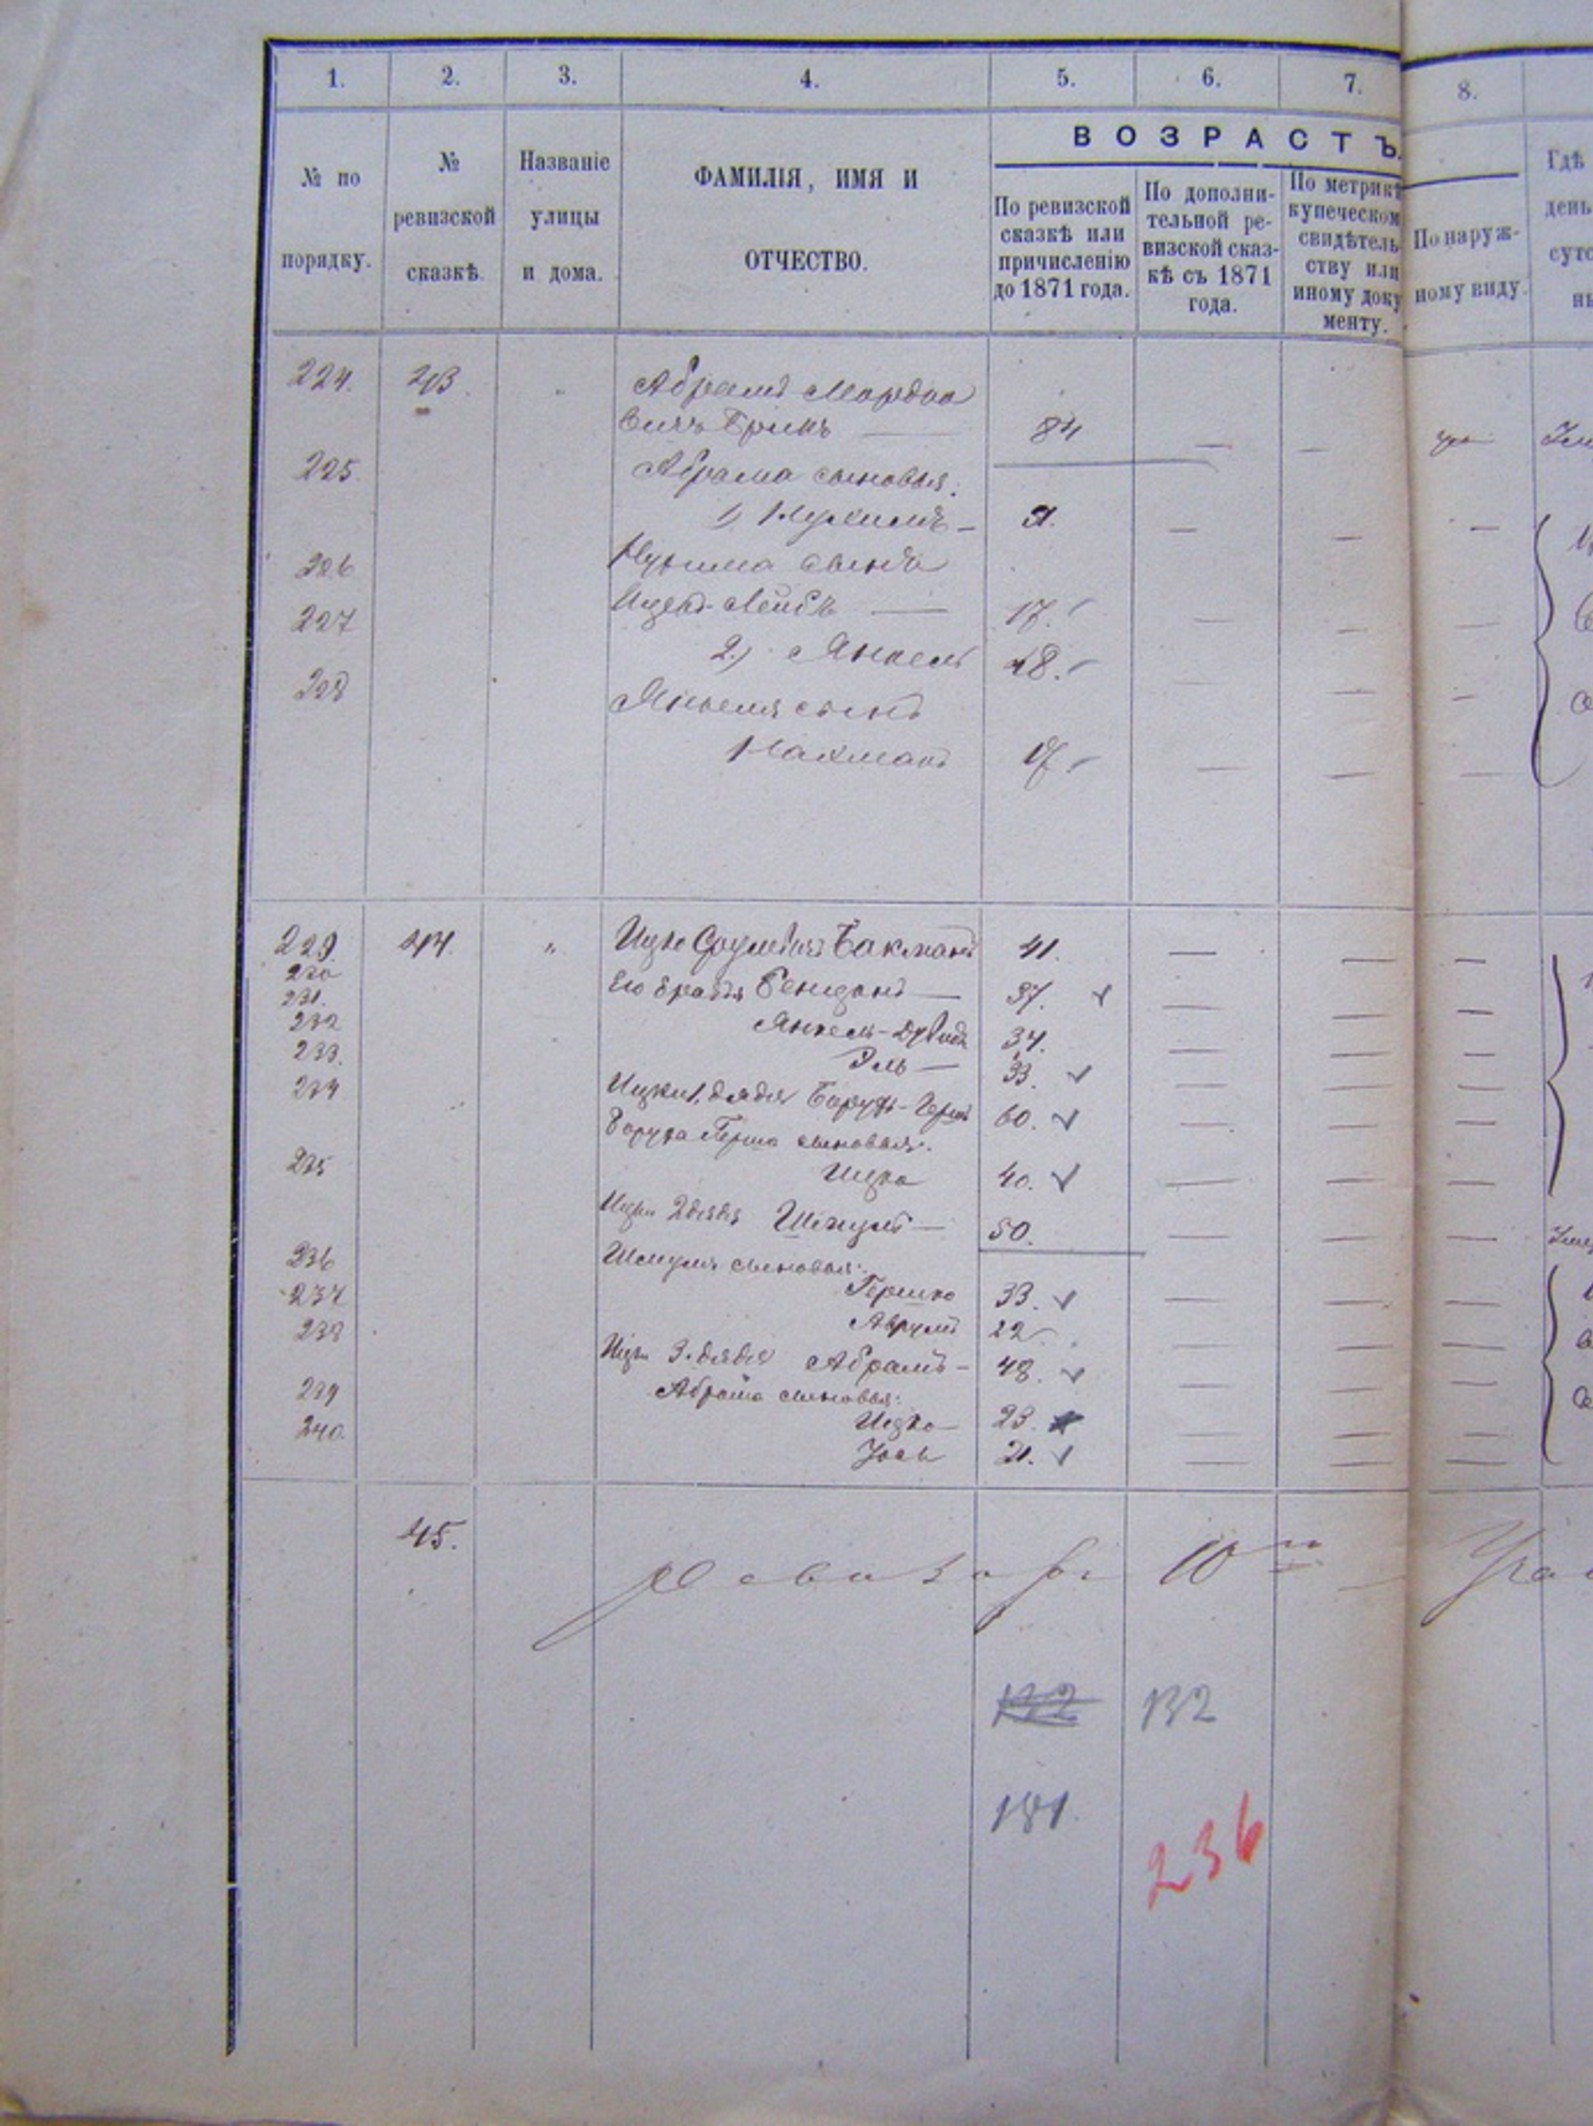 1. 2. 3. 4. 5. 6. 7. 8.
ВОЗРАСТЪ.
№ по порядку.
№ ревизской сказкѣ.
Названіе улицы и дома.
ФАМИЛІЯ, ИМЯ И ОТЧЕСТВО.
По ревизской сказкѣ или причисленію до 1871 года.
По дополнительной ревизской сказкѣ съ 1871 года.
По метрикѣ купеческом свидѣтельству или иному документу.
По наружному виду.
Гдѣ
день
224. 213. Абрамъ Мордко
вичъ 84
225. Абрама сыновья:
1) Нухимъ — 51.
226 Нухима сынъ
227 Ицекъ-Лейбъ — 17.
2.) Янкель 48.
228 Янкеля сынъ
Нахманъ 17.
229. 214. " Ицко Срулевичъ Бакманъ 41.
230 Его братья Бенционъ — 37.
231. Янкель-Дувидъ 34.
232 Эль — 33.
233. Ицки 1. дядя Борухъ-Гершъ 60.
234 Боруха Герша сыновья:
Ицко 40.
235 Ицки 2 дядя Шмуль — 50.
236 Шмуля сыновья:
Гершко 33.
237 Аврумъ 22
238 Ицки 3. дядя Абрамъ — 48.
Абрама сыновья:
239 Ицко — 23.
240. Іось 21.
215. 10
132
181.
236